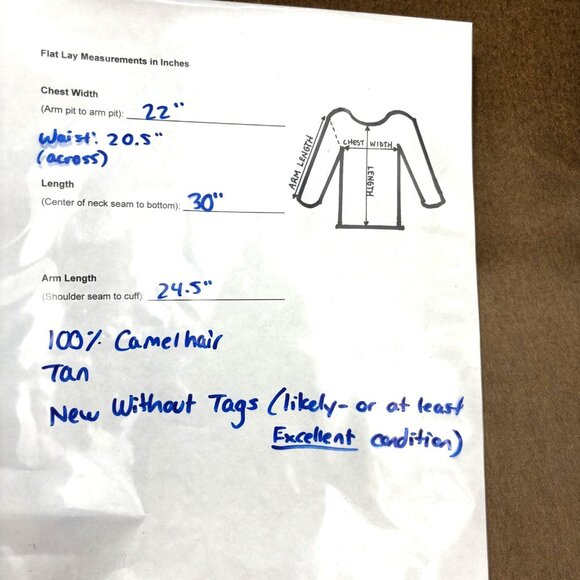 Flat Lay Measurements in Inches
Chest Width
(Arm pit to arm pit): 22"
Waist: 20.5"
(across)
Length
(Center of neck seam to bottom): 30"
ARM LENGTH
CHEST WIDTH
LENGTH
Arm Length
(Shoulder seam to cuff): 24.5"
100% Camelhair
Tan
New Without Tags (likely- or at least
Excellent condition)